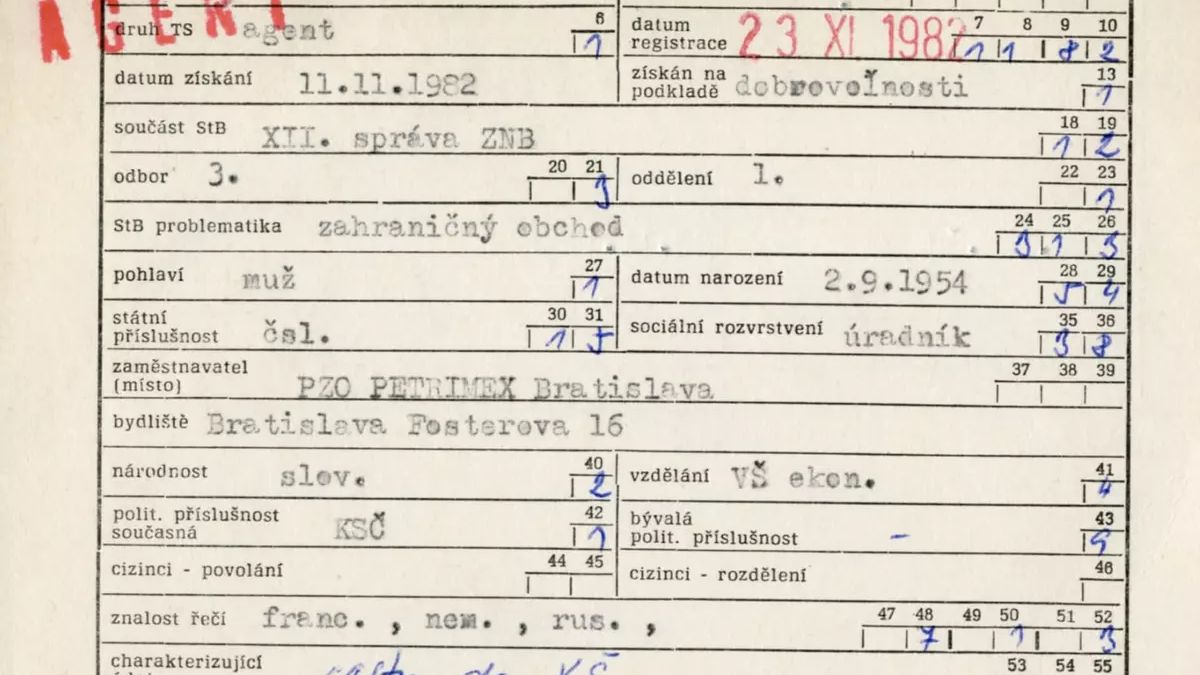 AGENT
druh TS agent 6 1
datum registrace 23 XI 1982 7 8 9 10 1 1 8 2
datum získání 11.11.1982
získán na podkladě dobrovoľnosti 13 1
součást StB XII. správa ZNB 18 19 1 2
odbor 3. 20 21 3
oddělení 1. 22 23 1
StB problematika zahraničný obchod 24 25 26 3 1 3
pohlaví muž 27 1
datum narození 2.9.1954 28 29 5 4
státní příslušnost čsl. 30 31 1 5
sociální rozvrstvení úradník 35 36 3 8
zaměstnavatel (místo) PZO PETRIMEX Bratislava 37 38 39
bydliště Bratislava Fosterova 16
národnost slov. 40 2
vzdělání VŠ ekon. 41 4
polit. příslušnost současná KSČ 42 1
bývalá polit. příslušnost - 43 9
cizinci - povolání 44 45
cizinci - rozdělení 46
znalost řečí franc. , nem. , rus. , 47 48 49 50 51 52 7 1 3
charakterizující 53 54 55